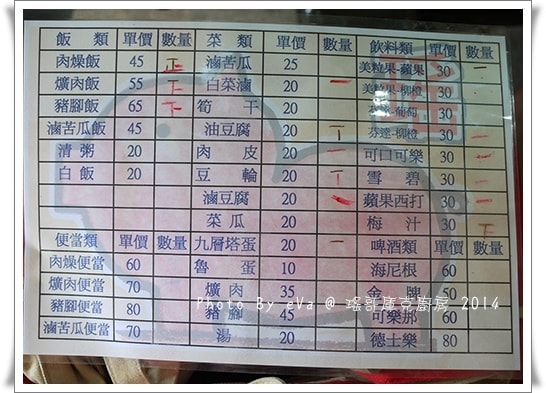 飯類 單價 數量 菜類 單價 數量 飲料類 單價 數量
肉燥飯 45 正 滷苦瓜 25 美粒果-蘋果 30 一
爌肉飯 55 下 白菜滷 20 一 美粒果-柳橙 30
豬腳飯 65 下 筍干 20 芬達-葡萄 30
滷苦瓜飯 45 油豆腐 20 丁 芬達-柳橙 30 一
清粥 20 肉皮 20 一 可口可樂 30 一
白飯 20 豆輪 20 丁 雪碧 30 一
滷豆腐 20 蘋果西打 30 一
菜瓜 20 梅汁 30 丁
便當類 單價 數量 九層塔蛋 20 一 啤酒類 單價 數量
肉燥便當 60 魯蛋 10 海尼根 60
爌肉便當 70 爌肉 35 金牌 50
豬腳便當 80 豬腳 45 可樂那 60
滷苦瓜便當 70 湯 20 德士樂 80
Photo By eVa @ 瑤哥 廚房 2014